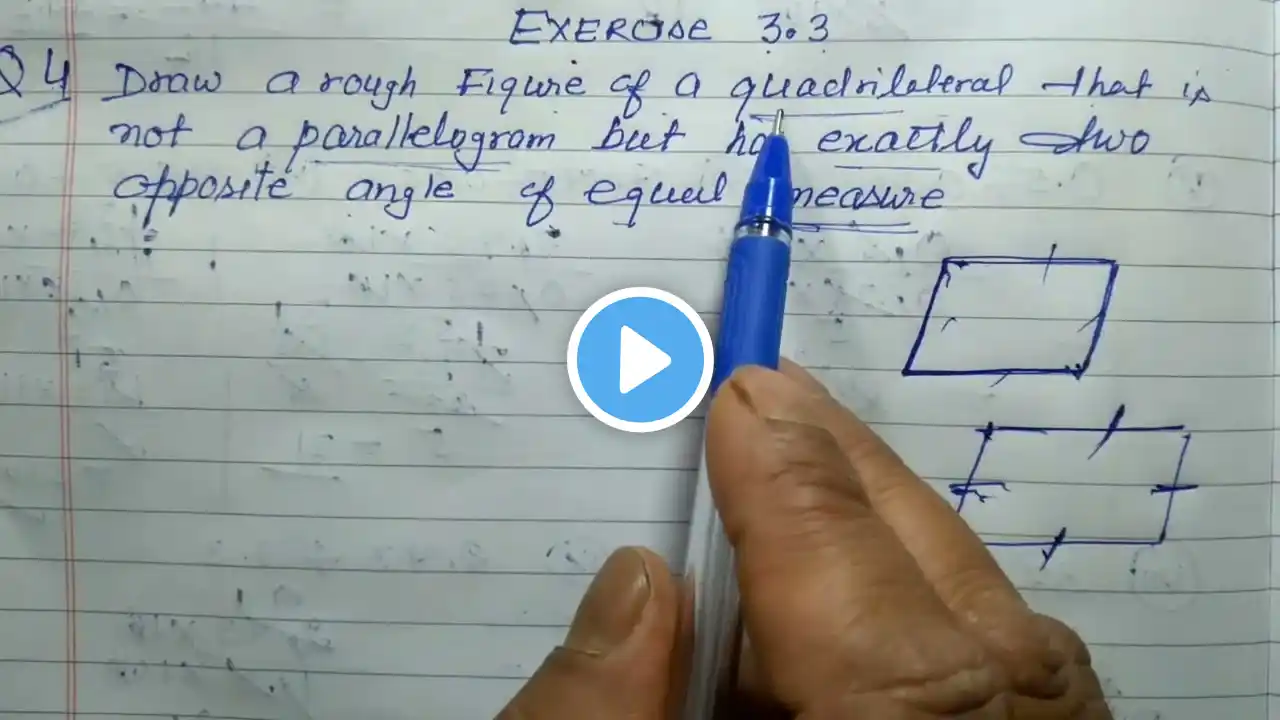 EXERCISE 3.3
Q4 Draw a rough Figure of a quadrilateral that is
not a parallelogram but has exactly two
opposite angle of equal measure